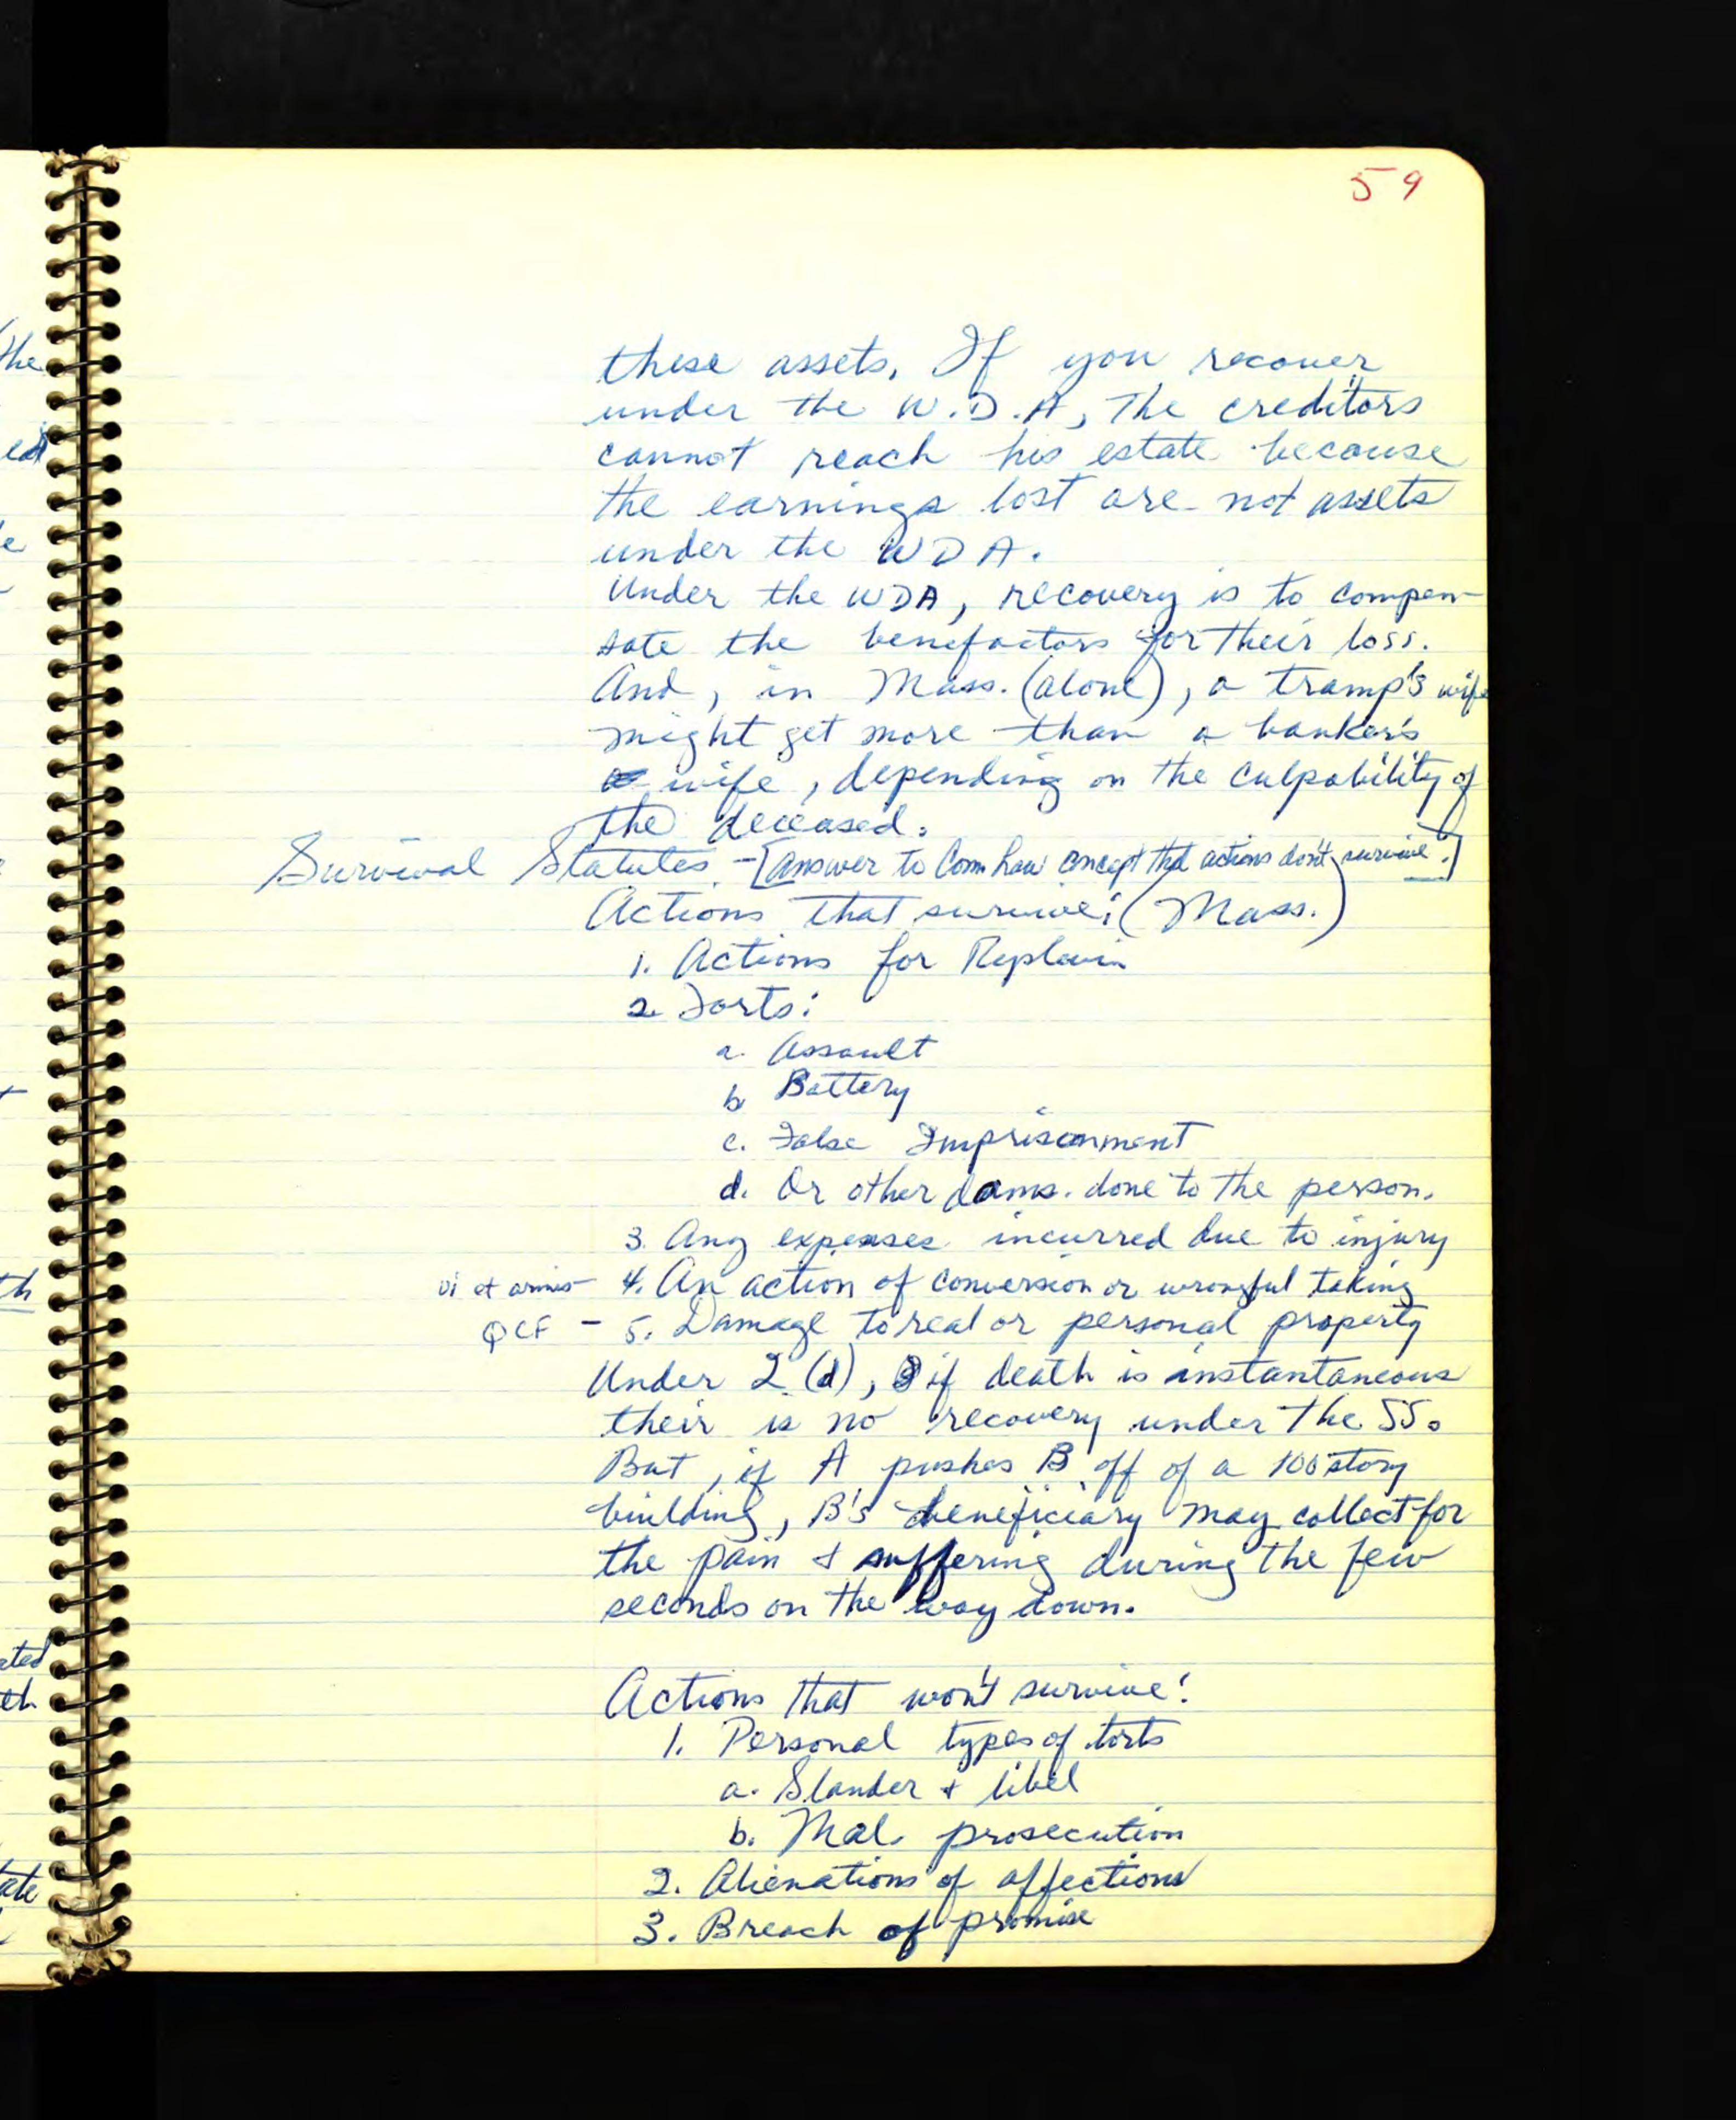 59
these assets. If you recover
under the W.D.A, The creditors
cannot reach his estate because
the earnings lost are not assets
under the WDA.
Under the WDA, recovery is to compen-
sate the benefactors for their loss.
And, in Mass. (alone), a tramp's wife
might get more than a banker's
wife, depending on the culpability of
the deceased.
Survival Statutes - [Answer to Comm Law concept that actions don't survive.]
Actions that survive: (Mass.)
1. Actions for Replevin
2. Torts:
a. Assault
b Battery
c. False Imprisonment
d. Or other dams. done to the person.
3. Any expenses incurred due to injury
vi et armis - 4. An action of conversion or wrongful taking
QCF - 5. Damage to real or personal property
Under 2 (d), if death is instantaneous
their is no recovery under the SS.
But, if A pushes B off of a 100 story
building, B's beneficiary may collect for
the pain & suffering during the few
seconds on the way down.
Actions that won't survive:
1. Personal types of torts
a. Slander & libel
b. Mal. prosecution
2. Alienations of affections
3. Breach of promise
the
th
ated
eth
tate